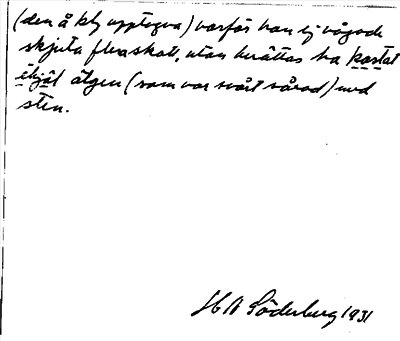 (den å kly upptogna) varför han ej vågade
skjuta flera skott, utan berättas ha kastat
ihjäl älgen (som var svårt sårad) med
sten.
H N Söderberg 1931